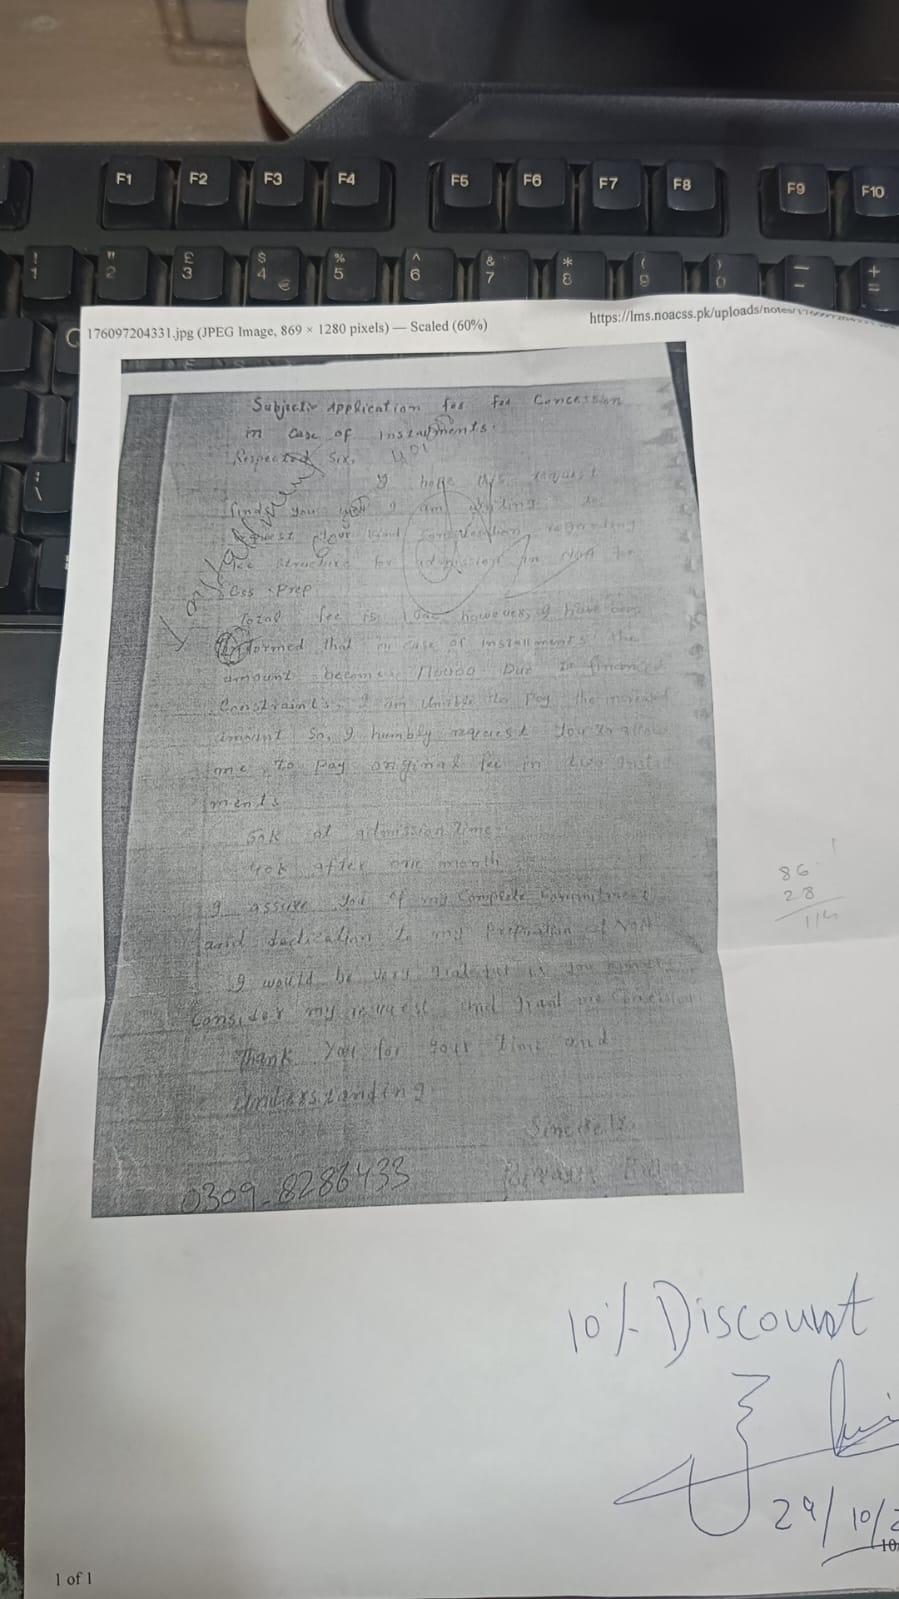 F1 F2 F3 F4 F5 F6 F7 F8 F9 F10
! 1 " 2 £ 3 $ 4 € % 5 ^ 6 & 7 * 8 ( 9 ) 0 — - + =
176097204331.jpg (JPEG Image, 869 × 1280 pixels) — Scaled (60%)
https://lms.noacss.pk/uploads/notes/
Application for fee Concession
in case of instalments.
Respected Sir,
I hope this request
finds you well I am writing to
request your kind consideration regarding
fee structure for admission in NOA for
Css Prep
Total fee is however, I have been
informed that in case of installments the
amount becomes 110000 Due to financial
Constraints, I am unable to pay the increased
amount So, I humbly request you to allow
me to pay original fee in two instal
ments
at admission time
after one month
I assure you of my complete commitment
and dedication to my
I would be very grateful if you
Consider my request and grant me
Thank You for your time and
Understanding
Sincerely
0309-8286433
86
28
114
10% Discount
29/10/
1 of 1